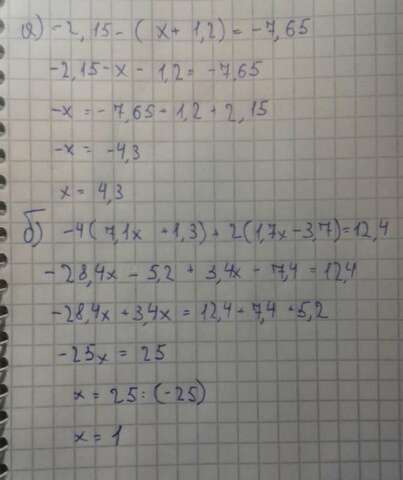 а) -2,15 - ( x + 1,2) = -7,65
-2,15 - x - 1,2 = -7,65
-x = - 7,65 + 1,2 + 2,15
-x = -4,3
x = 4,3
б) -4( 7,1x + 1,3) + 2(1,7x - 3,7) = 12,4
-28,4x - 5,2 + 3,4x - 7,4 = 12,4
-28,4x + 3,4x = 12,4 + 7,4 + 5,2
-25x = 25
x = 25 : (-25)
x = 1